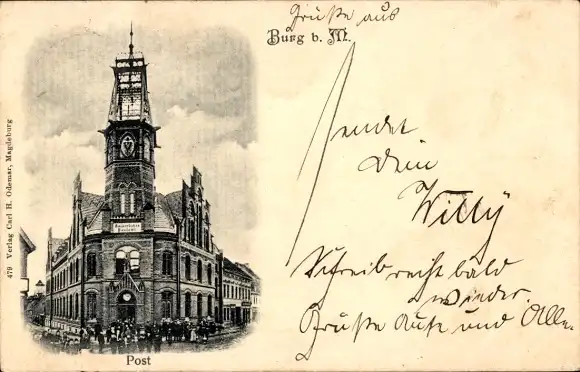 Grüße aus
Burg b. M.
sendet
Dein
Willy
Schreib recht bald
wieder.
Grüße Kurt und Alle.
479 Verlag Carl H. Odemar, Magdeburg
Kaiserliches
Postamt
Post